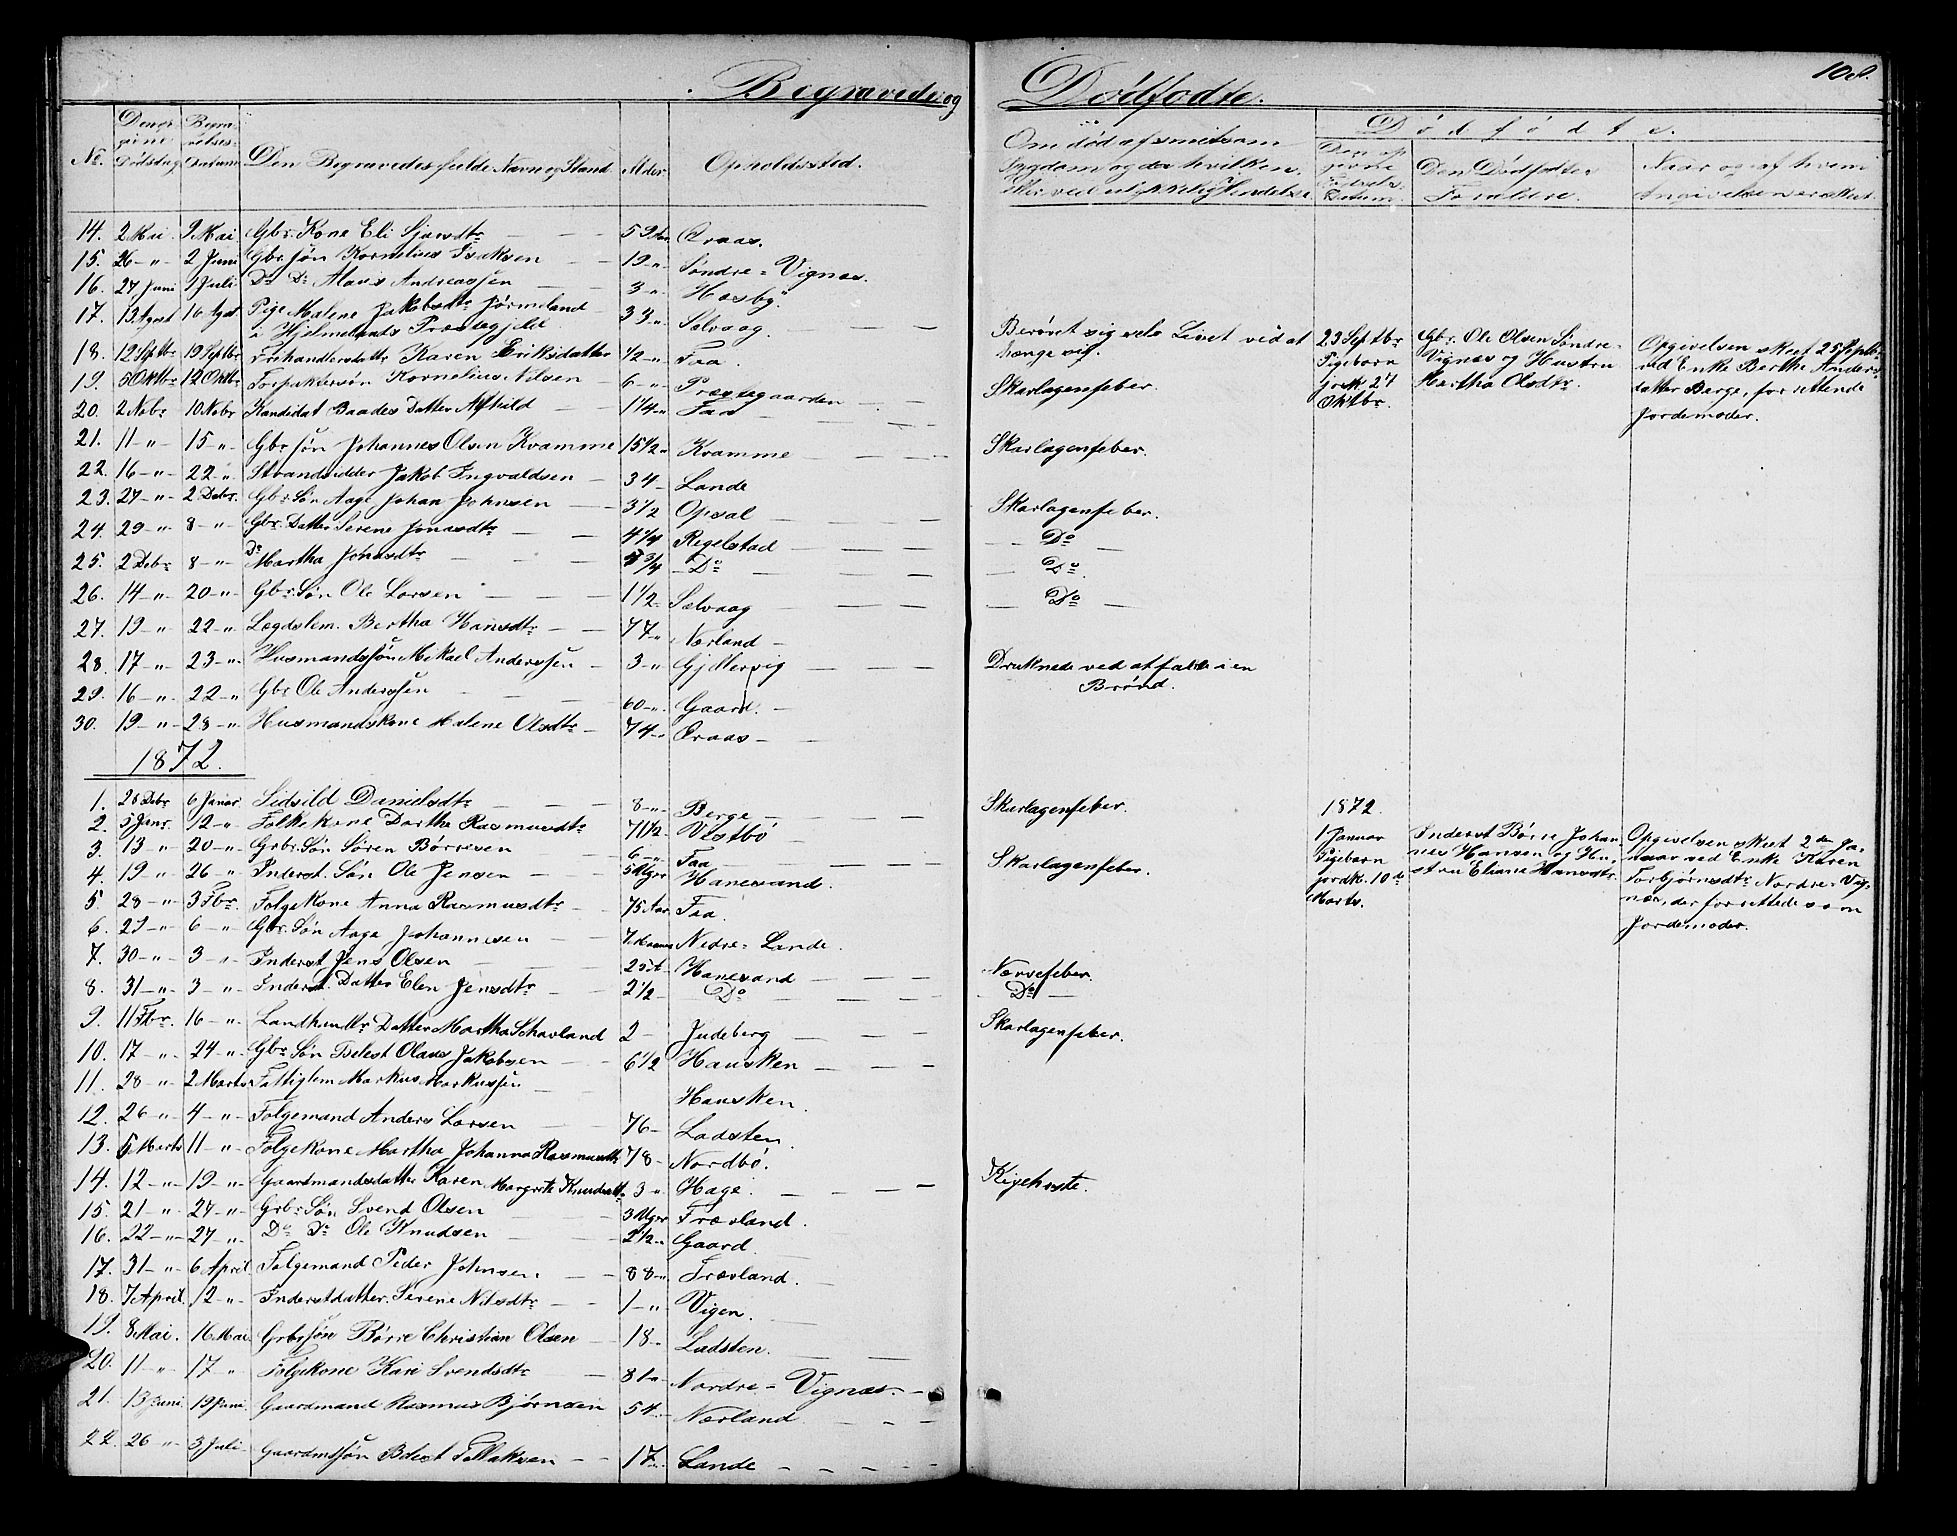 Begravede og
Dødfødte.
10
No. Den opgivne Dødsdag Begravelses-Datum Den Begravedes fulde Navn og Stand Alder Opholdssted.
Om død af smitsom Sygdom og da hvilken, eller ved ulykkelig Hændelse
Dødfødte.
Den Dødfødtes Forældre.
Naar og af hvem Angivelsen er skeet
14. 2 Mai 9 Mai Gbr. Kone Eli Sjursdtr 59 Aar Qraas.
15. 26 -"- 2 Juni Gbr. søn Kornelius Isaksen 19 -"- Søndre-Vignæs.
16. 27 Juni 9 Juli Do Do Alavis Andreassen 3 -"- Hæsby.
17. 13 Agust 16 Agst Pige Malene Jakobsdtr Jørmeland 33 -"- Sølvaag.
i Hjelmelands Præstegjeld
Berøvet sig selv Livet ved at hænge sig.
18. 12 Septbr 19 Septbr Frihandlersdattr Karen Eriksdatter 1/2 -"- Faa.
19. 5 Oktbr 12 Oktbr Forpaktersøn Kornelius Nilsen 6 -"- Præstegaarden Skarlagenfeber.
20. 2 Nobr 10 Nobr Kandidat Baades Datter Alfhild 1 1/4 -"- Faa
21. 11 -"- 15 -"- Gbr søn Johannes Olsen Kvamme 15 1/2 Kvamme Skarlagenfeber.
22. 16 -"- 22 -"- Strandsidder Jakob Ingvaldsen 34 - Lande
23. 27 -"- 2 Debr. Gbr. Søn Aage Johan Johnsen 3 1/2 Opsal Skarlagenfeber.
24. 29 -"- 8 -"- Gbr. Datter Serene Jonasdtr 4 1/4 Regelstad Do
25. 2 Debr 8 -"- Do Martha Jonasdtr 3/4 Do Do
26. 14 -"- 20 -"- Gbr. Søn Ole Larsen 1 1/2 Sælvaag Do
27. 19 -"- 22 -"- Lægdslem. Bertha Hansdtr 77 -"- Nærland
28. 17 -"- 23 -"- Husmandssøn Mikael Anderssen 3 -"- Gjettervig Druknede ved at falde i en
Brønd.
29. 16 -"- 22 -"- Gbr Ole Anderssen 60 -"- Gaard.
30. 19 -"- 28 -"- Husmandskone Malene Olsdtr 74 -"- Qraas
23 Septbr Pigebarn jordk 27 Oktbr.
Gbr. Ole Olsen Søndre-Vignæs og Hustru Martha Olsdtr.
Opgivelsen skeet 25 Septbr ved Enke Berthe Andersdatter Berge, forrettende Jordemoder.
1872.
1. 28 Debr 6 Januar Sidsild Danielsdtr 8 -"- Berge Skarlagenfeber.
2. 5 Janr. 12 -"- Folkekone Dorthe Rasmusdtr 71 1/2 Vestbø
3. 13 -"- 20 -"- Grbr. Søn Søren Børresen 6 -"- Faa
4. 19 -"- 26 -"- Inderst. Søn Ole Jensen 5 Uger Hanesand. Skarlagenfeber.
5. 28 -"- 3 Fbr. Folgekone Anna Rasmusdtr 75 Aar Faa.
6. 23 -"- 6 -"- Gbr. Søn Aage Johannesen 7 Maaned Nedre-Lande.
7. 30 -"- 3 -"- Inderst Jens Olsen 25 Hanesand Nervefeber.
8. 31 -"- 3 -"- Inderst. Datter Elen Jensdtr 2 1/2 Do Do
9. 11 Fbr. 16 -"- Landhandlr Datter Martha Schavland 2 - Judeberg Skarlagenfeber.
10. 17 -"- 24 -"- Gbr. Søn Tselest Olaus Jakobsen 6 1/2 Hausken
11. 28 -"- 2 Marts Fattiglem Markus Markussen Hausken.
12. 26 -"- 4 -"- Folgemand Anders Larsen 76 - Ladsten.
13. 5 Marts 11 -"- Folgekone Martha Johanna Rasmusdtr 78 - Nordbø.
14. 12 -"- 19 -"- Gaardmandsdatter Karen Margrete Knudsdtr 3 -"- Hage. Kighoste.
15. 21 -"- 27 -"- Grbr. Søn Svend Olsen 3 Uger Frævland.
16. 22 -"- 27 -"- Do Do Ole Knudsen 2 1/2 Gaard
17. 31 -"- 6 April Folgemand Peder Johnsen. 88 -"- Frævland.
18. 7 April. 12 -"- Inderstdatter. Serene Nilsdtr 1 -"- Vigen.
19. 8 Mai. 16 Mai Grbr søn Børre Christian Olsen 18 -"- Ladsten.
20. 11 -"- 17 -"- Folgekone Kari Svendsdtr 81 -"- Nordre-Vignæs.
21. 13 Juni 19 Juni Gaardmand Rasmus Bjørnsen 54 - Nærland
22. 26 -"- 3 Juli Gaardmssøn Bdest Tollaksen 17 - Lande
1872.
1 Januar Pigebarn jordk. 10de Marts.
Inderst Børre Johannes Hansen og Hustru Eliana Hansdtr
Opgivelsen skeet 2den Januar ved Enke Karen Torbjørnsdtr Nordre-Vignæs, der forrettede som Jordemoder.